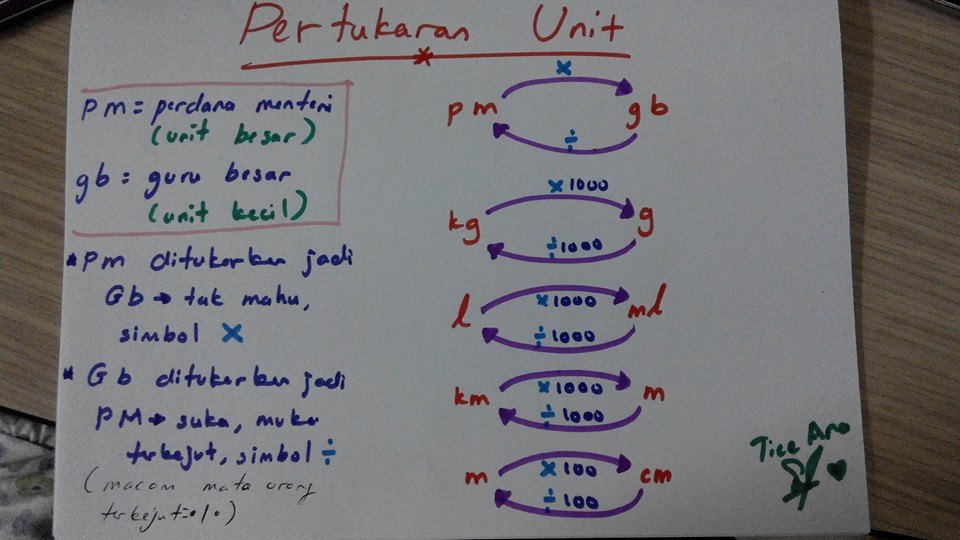 Pertukaran Unit
pm = perdana menteri
(unit besar)
gb = guru besar
(unit kecil)
* Pm ditukarkan jadi
Gb → tak mahu,
simbol ×
* Gb ditukarkan jadi
PM → suka, muka
terkejut, simbol ÷
(macam mata orang
terkejut = •/•)
×
pm gb
÷
× 1000
kg g
÷ 1000
× 1000
l ml
÷ 1000
× 1000
km m
÷ 1000
× 100
m cm
÷ 100